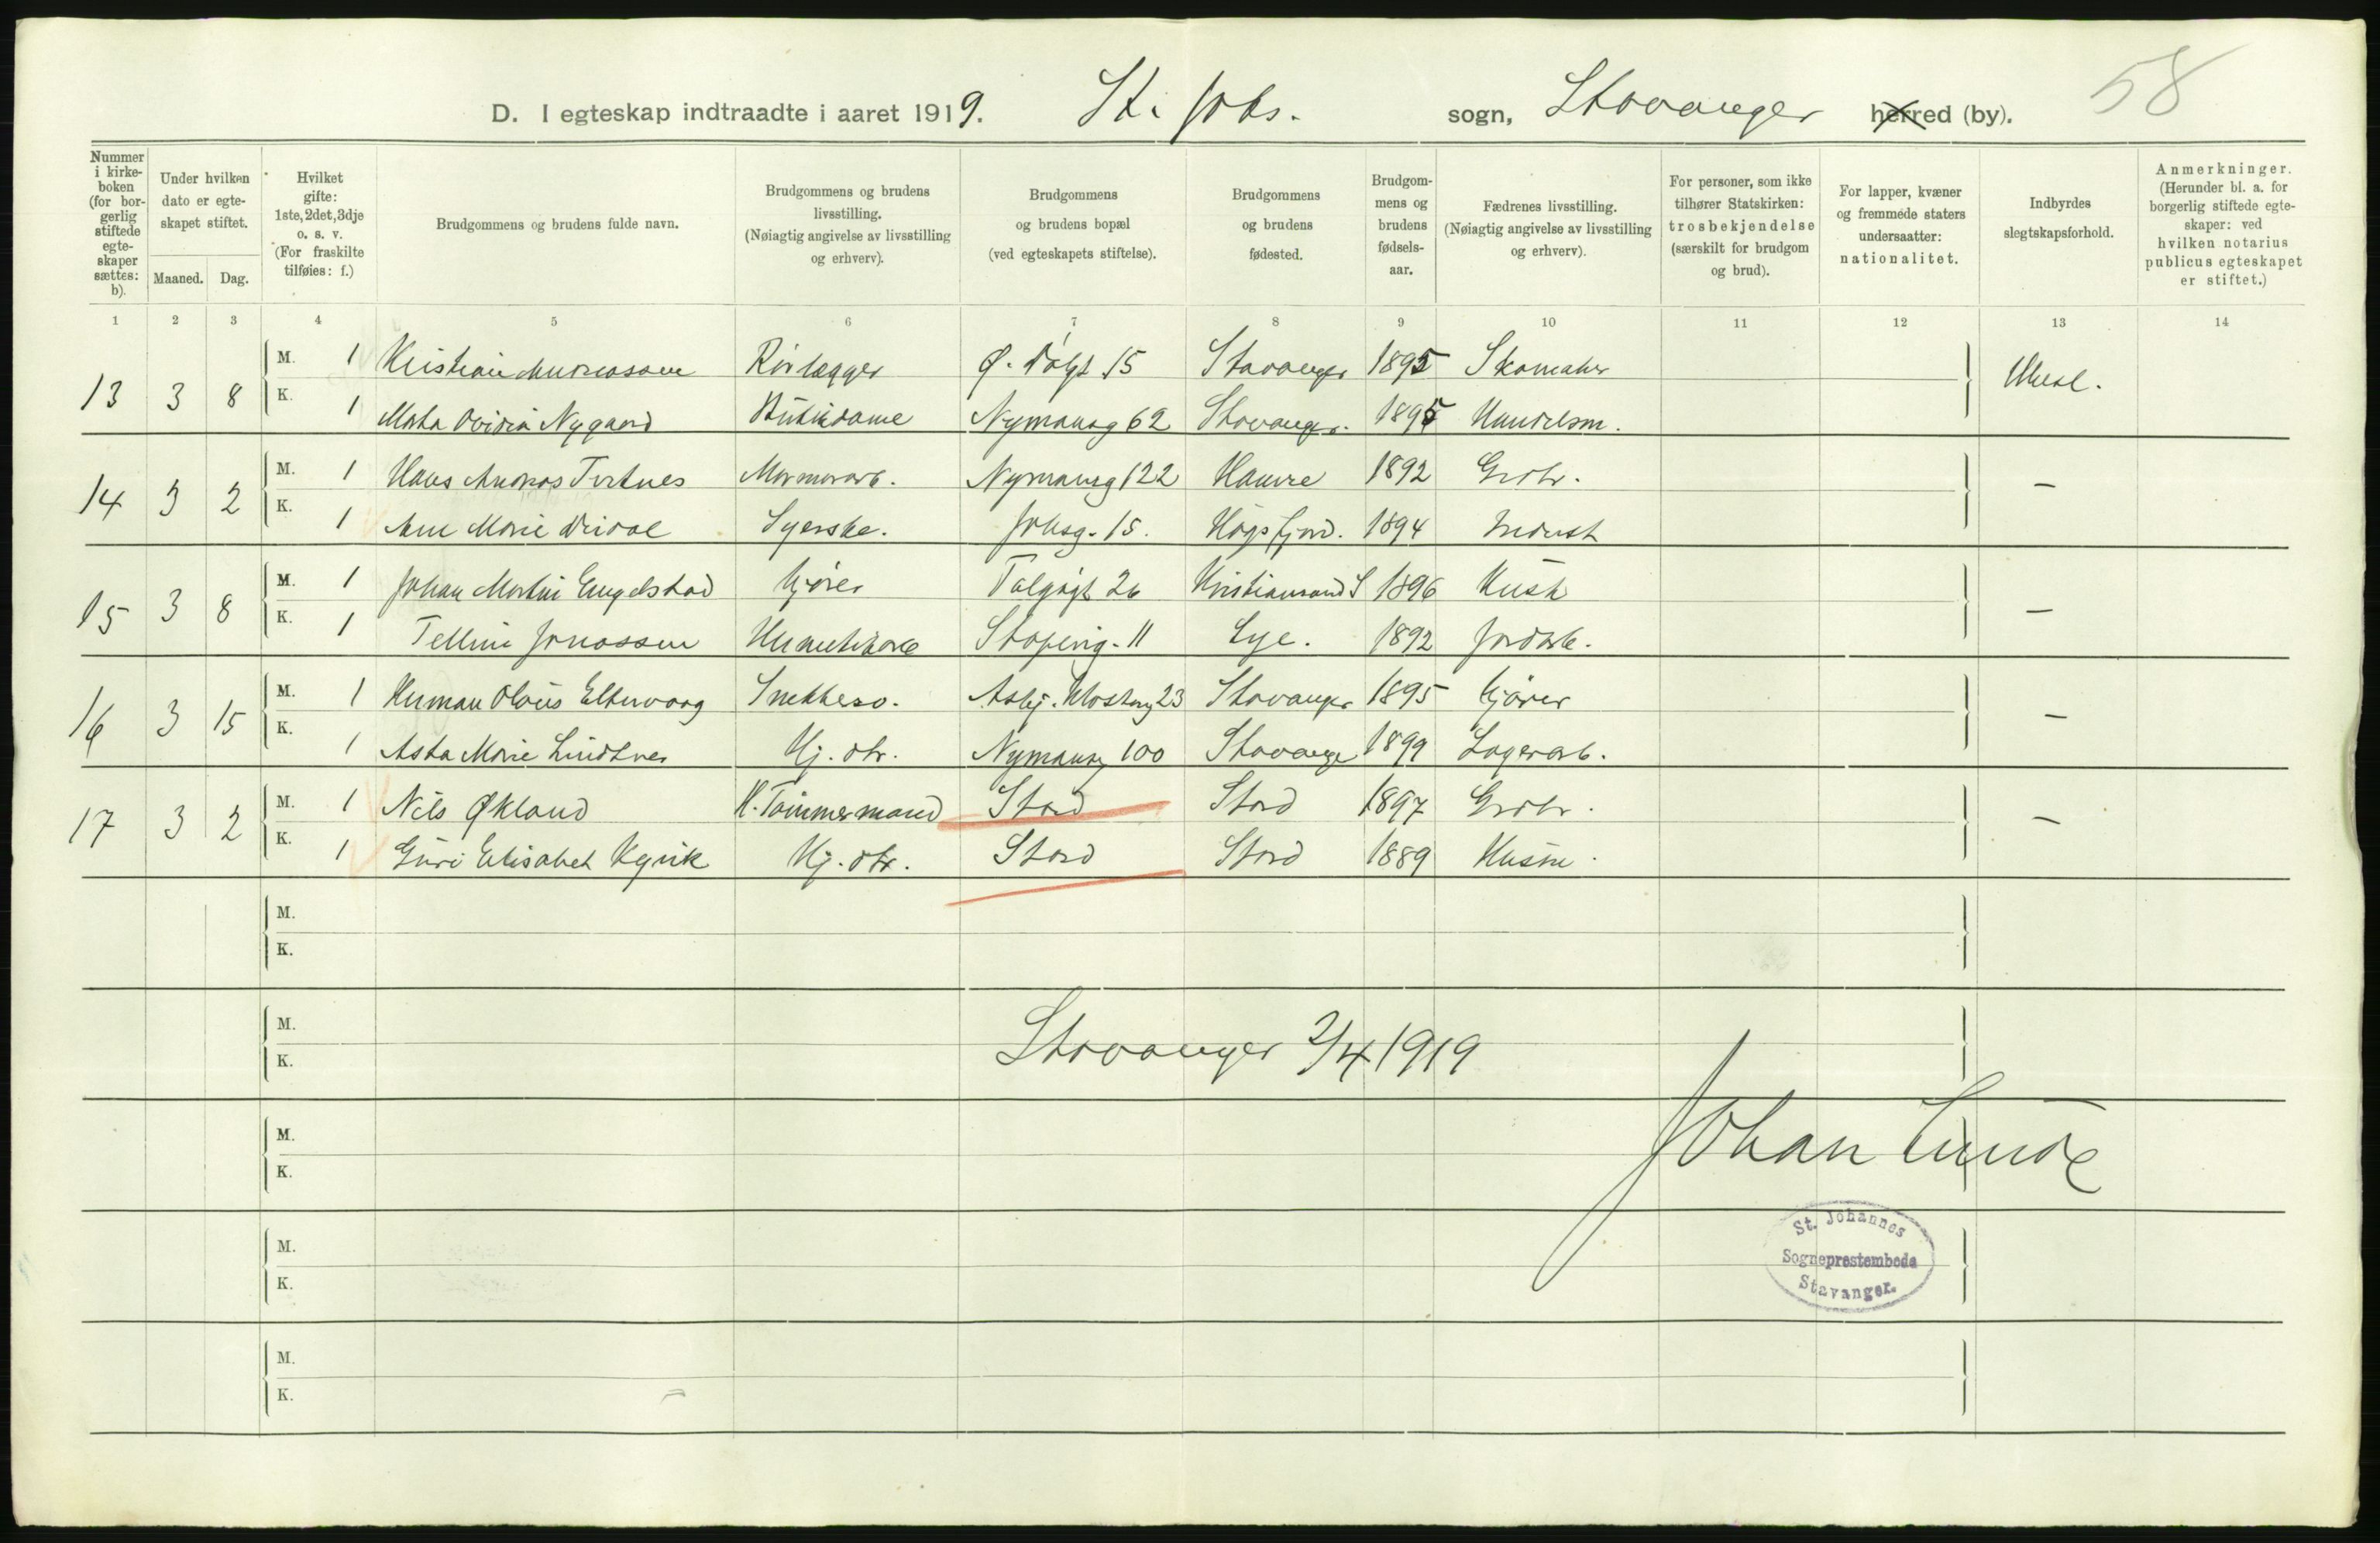 58
D. I egteskap indtraadte i aaret 1919. St. Johs. sogn, Stavanger herred (by).
Nummer i kirkeboken (for borgerlig stiftede egteskaper sættes: b).
Under hvilken dato er egteskapet stiftet.
Maaned. Dag.
Hvilket gifte: 1ste, 2det, 3dje o. s. v. (For fraskilte tilføies: f.)
Brudgommens og brudens fulde navn.
Brudgommens og brudens livsstilling. (Nøiagtig angivelse av livsstilling og erhverv).
Brudgommens og brudens bopæl (ved egteskapets stiftelse).
Brudgommens og brudens fødested.
Brudgommens og brudens fødselsaar.
Fædrenes livsstilling. (Nøiagtig angivelse av livsstilling og erhverv).
For personer, som ikke tilhører Statskirken: trosbekjendelse (særskilt for brudgom og brud).
For lapper, kvæner og fremmede staters undersaatter: nationalitet.
Indbyrdes slegtskapsforhold.
Anmerkninger. (Herunder bl. a. for borgerlig stiftede egteskaper: ved hvilken notarius publicus egteskapet er stiftet.)
1 2 3 4 5 6 7 8 9 10 11 12 13 14
13 3 8 M. 1 Kristian Andreassen Rørlægger Stavanger 1895 Skomaker Ubesl.
K. 1 Marta Ovidia Nygaard Butikdame Nymansg 62 Stavanger. 1895 Handelsm.
14 3 2 M. 1 Hans Andreas Tertnes Marmorarb. Nymansg 122 Hamre 1892 Grdbr. —
K. 1 Ane Marie Syerske. Johsg. 15. Høgsfjord. 1894 Inderst
15 3 8 M. 1 Johan Martin Engelstad Kjører 26 Kristiansand S 1896 Kusk —
K. 1 Jonassen Hermetikarb 11 Lye. 1892 Jordarb.
16 3 15 M. 1 Herman Olaus Eltervaag Snekkersv. Asbj. Klosterg 23 Stavanger 1895 Kjører —
K. 1 Asta Marie Lindtner Hj. dtr. Nymansg 100 Stavanger 1899 Lagerarb.
17 3 2 M. 1 Nils Økland H. Tømmermand Stord Stord 1897 Grdbr. —
K. 1 Guri Elisabet Kyvik Hj. dtr. Stord Stord 1889 Husm.
M.
K.
M.
K.
Stavanger 2/4 1919
M.
K.
Johan Lunde
M.
K.
St. Johannes
Sogneprestembede
Stavanger.
M.
K.